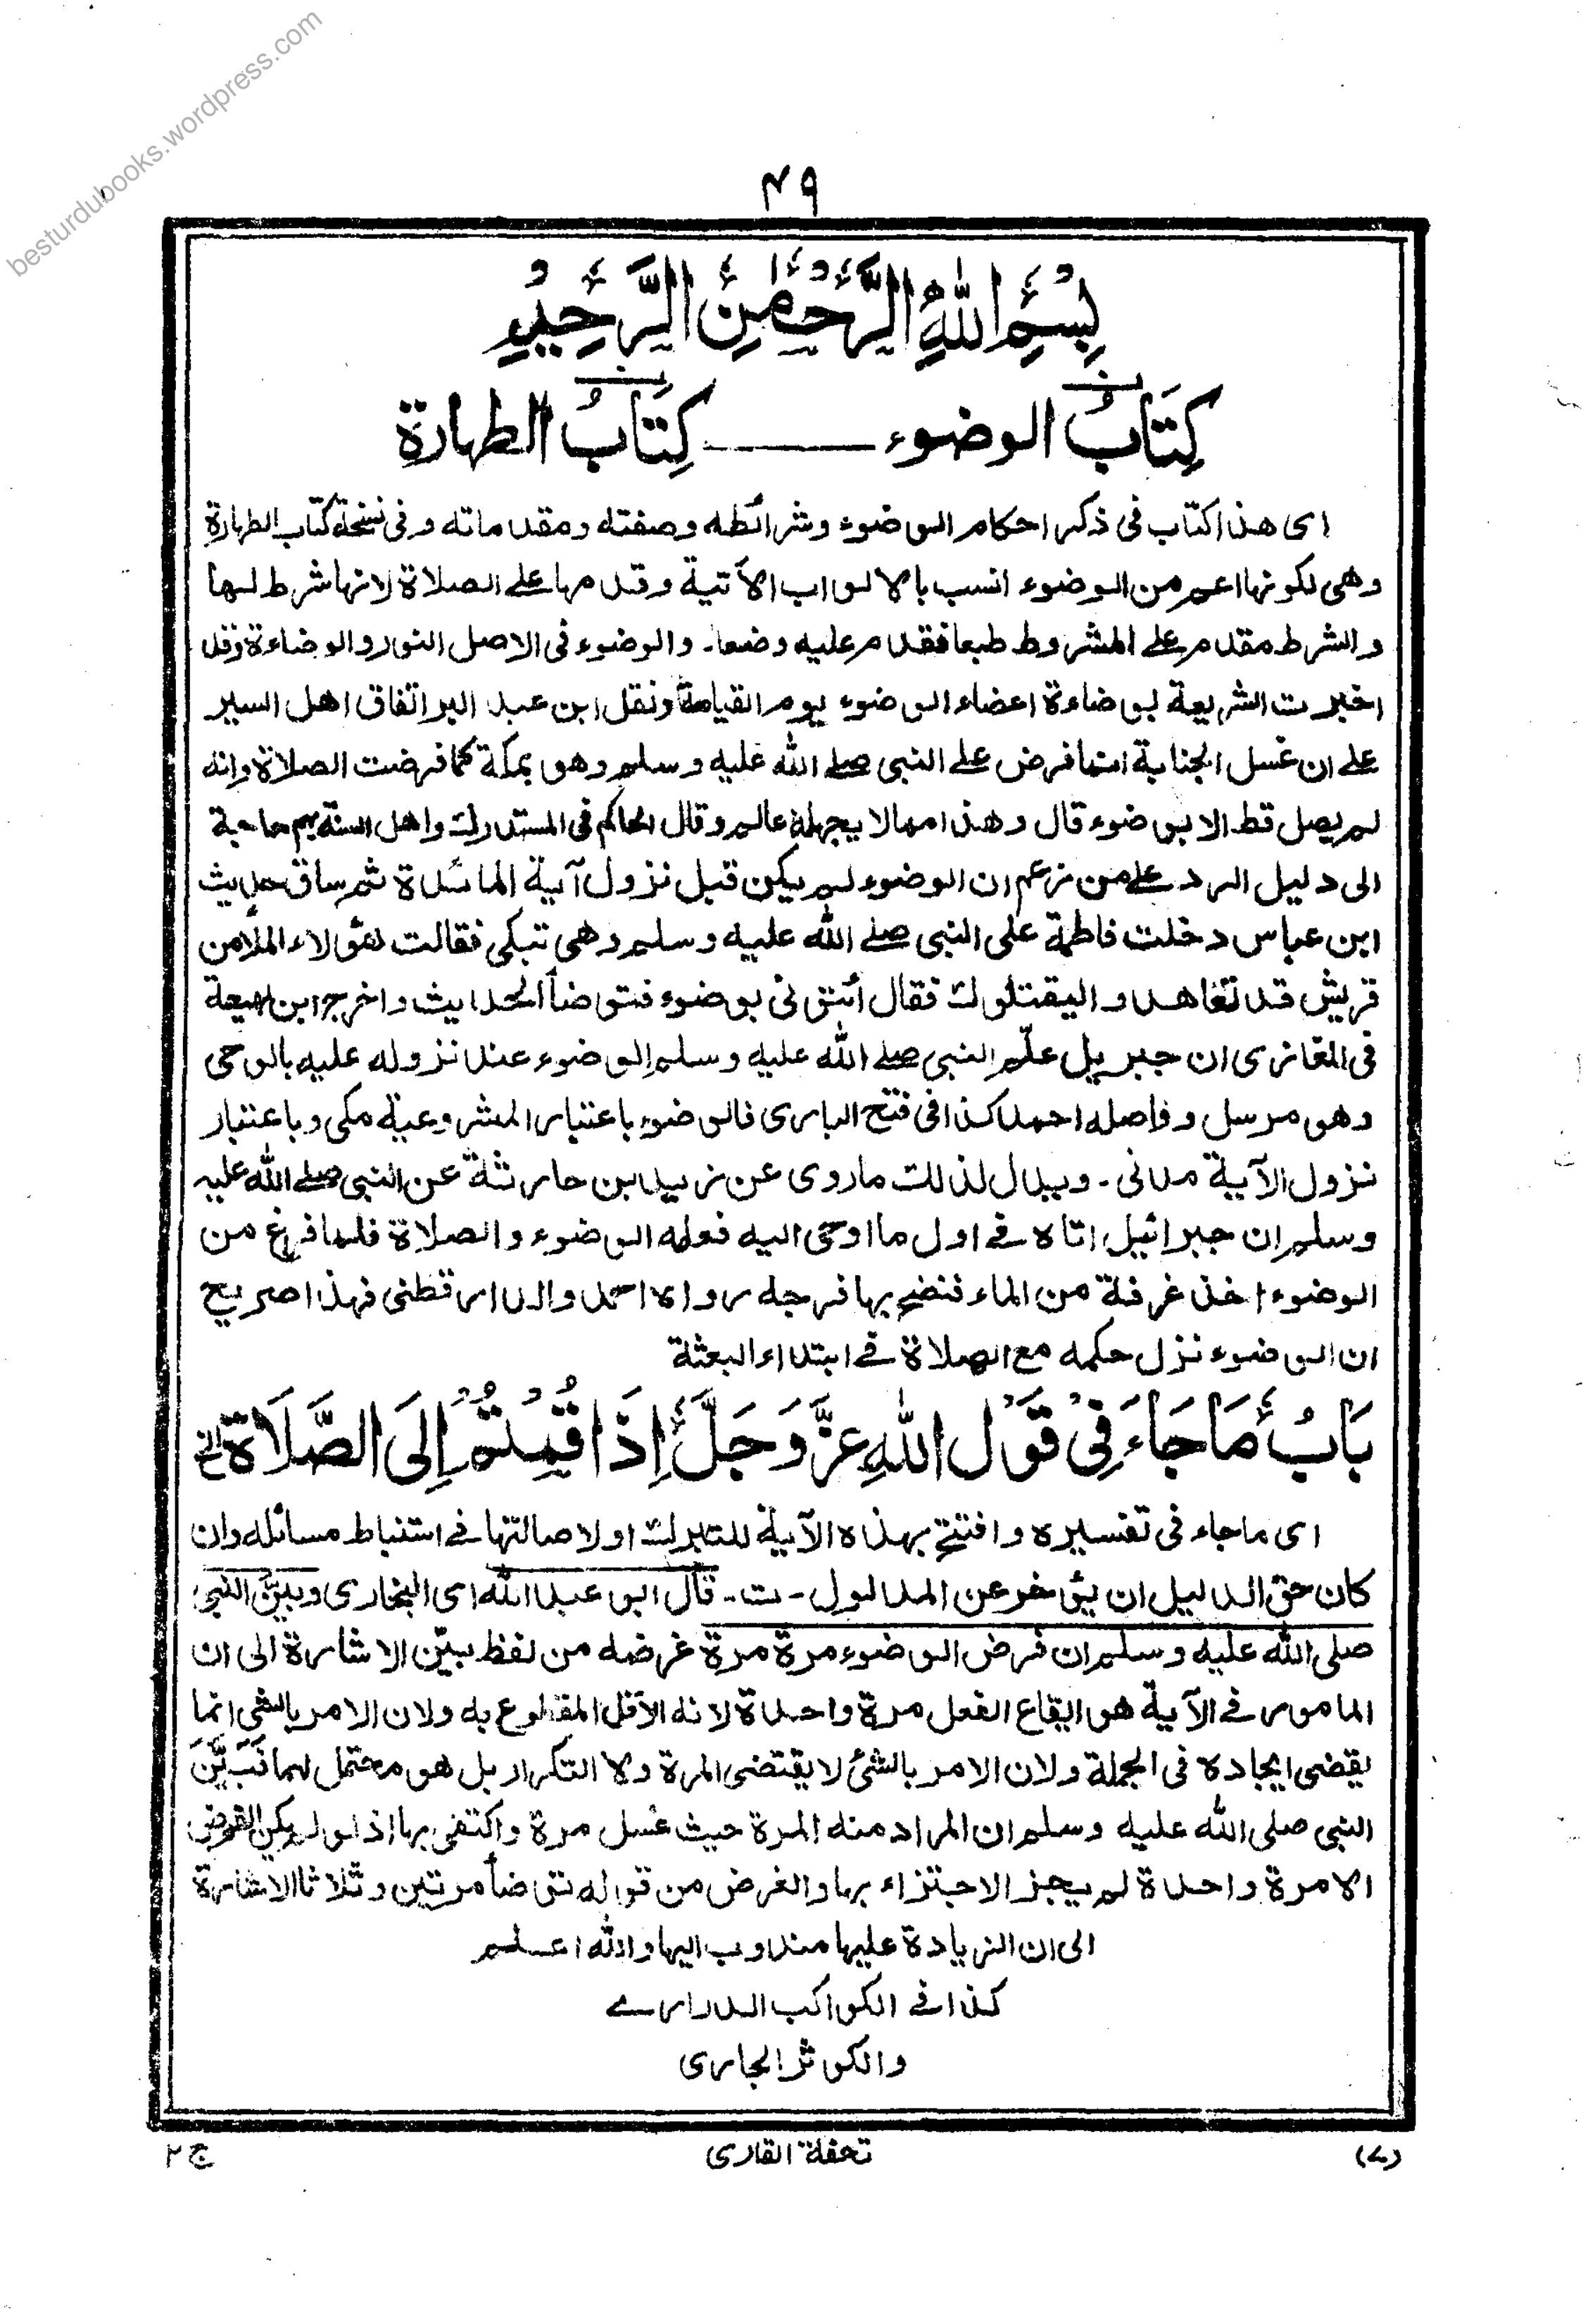 besturdubooks.wordpress.com
۴۹
بِسْمِ اللهِ الرَّحْمٰنِ الرَّحِيْمِ
كِتَابُ الوضوء ــــــ كِتَابُ الطهارة
اى هذا كتاب فى ذكر احكام الوضوء وشرائطه وصفته ومقدماته وفى نسخة كتاب الطهارة
وهى لكونها اعم من الوضوء انسب بالابواب الآتية وقدمها على الصلاة لانها شرط لها
والشرط مقدم على المشروط طبعا فقدم عليه وضعا۔ والوضوء فى الاصل النور والوضاءة وقد
اخبرت الشريعة بوضاءة اعضاء الوضوء يوم القيامة ونقل ابن عبد البر اتفاق اهل السير
على ان غسل الجنابة انما فرض على النبى صلے الله عليه وسلم وهو بمكة كما فرضت الصلاة وانه
لم يصل قط الا بوضوء قال وهذا مما لا يجهله عالم وقال الحاكم فى المستدرك واهل السنة بهم حاجة
الى دليل الرد على من زعم ان الوضوء لم يكن قبل نزول آية المائدة ثم ساق حديث
ابن عباس دخلت فاطمة على النبى صلے الله عليه وسلم وهى تبكى فقالت هؤلاء الملأ من
قريش قد تعاهدوا ليقتلوك فقال ائتونى بوضوء فتوضأ الحديث واخرج ابن لهيعة
فى المغازى ان جبريل علّم النبى صلے الله عليه وسلم الوضوء عند نزوله عليه بالوحى
وهو مرسل ووصله احمد كذا فى فتح البارى فالوضوء باعتبار المشروعية مكى وباعتبار
نزول الآية مدنى۔ ويدل لذلك ماروى عن زيد بن حارثة عن النبى صلے الله عليه
وسلم ان جبرائيل اتاه فے اول ما اوحى اليه فعلمه الوضوء والصلاة فلما فرغ من
الوضوء اخذ غرفة من الماء فنضح بها فرجه رواه احمد والدارقطنى فهذا صريح
ان الوضوء نزل حكمه مع الصلاة فے ابتداء البعثة
بَابُ مَا جَاءَ فِىْ قَوْلِ اللهِ عَزَّ وَجَلَّ اِذَا قُمْتُمْ اِلَى الصَّلَاةِ الخ
اى ما جاء فى تفسيره وافتتح بهذه الآية للتبرك او لاصالتها فے استنباط مسائله وان
كان حق الدليل ان يؤخر عن المدلول۔ ت۔ قال ابو عبد الله اى البخارى وبين النبى
صلى الله عليه وسلم ان فرض الوضوء مرة مرة غرضه من لفظ بيّن الاشارة الى ان
المامور فے الآية هو ايقاع الفعل مرة واحدة لانه الاقل المقطوع به ولان الامر بالشى انما
يقضى ايجاده فى الجملة ولان الامر بالشئ لا يقتضى المرة ولا التكرار بل هو محتمل لهما فَبَيَّنَ
النبى صلى الله عليه وسلم ان المراد منه المرة حيث غسل مرة واكتفى بها اذ لو لم يكن الفرض
الا مرة واحدة لم يجز الاجتزاء بها والغرض من قوله توضأ مرتين وثلاثا الاشارة
الى ان الزيادة عليها مندوب اليها والله اعلم
كذا فے الكواكب الدرارے
والكوثر الجارى
(۷)
تحفة القارى
ج ۲